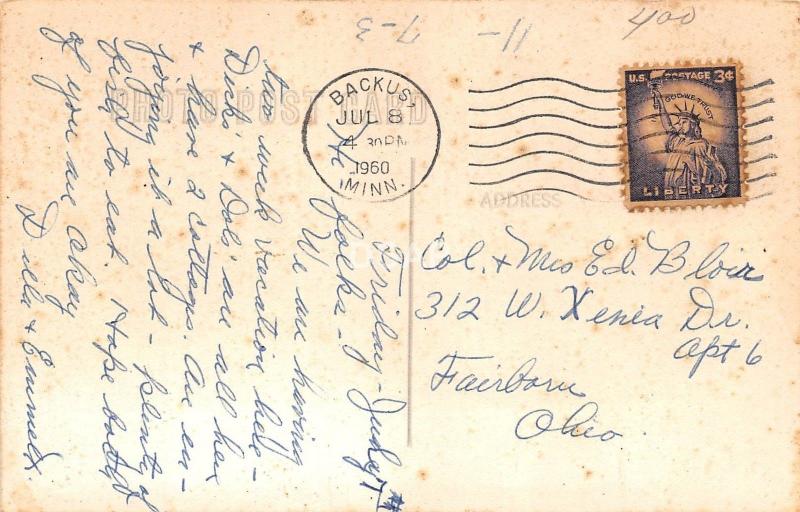 400
7-3
-11
PHOTO POST CARD
BACKUS,
JUL 8
4 30 PM
1960
MINN.
U.S. POSTAGE 3¢
IN GOD WE TRUST
LIBERTY
ADDRESS
Friday - July 7th
Hi folks -
We are having
two week vacation here -
Dick's & Dols' are all here
& have 2 cottages. Are en-
joying it a lot - plenty of
fish to eat. Hope both
of you are okay
& Emmett.
Col. & Mrs Ed. Blair
312 W. Xenia Dr.
Apt 6
Fairborn
Ohio